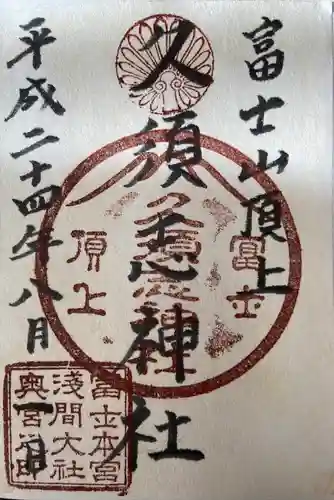 富士山頂上
久須志神社
平成二十四年八月一日
頂上
富士
富士本宮
浅間大社
奥宮之印